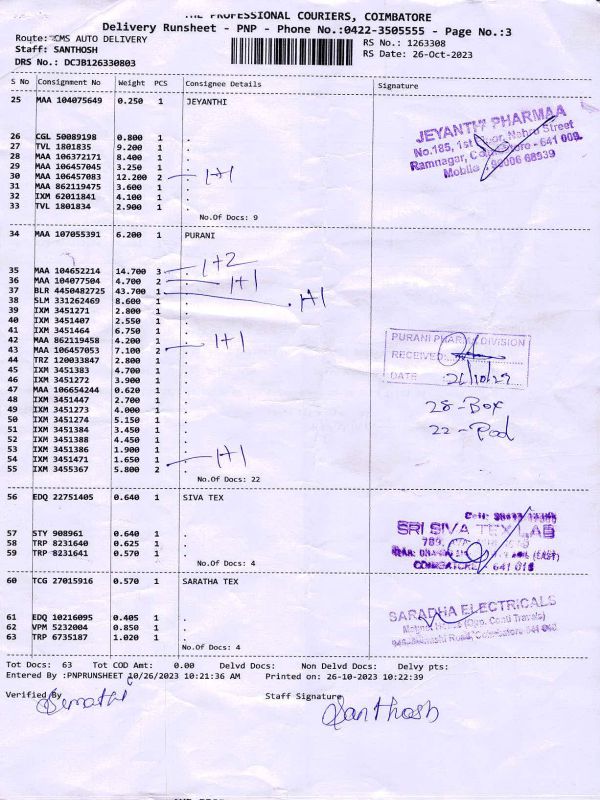 THE PROFESSIONAL COURIERS, COIMBATORE
Delivery Runsheet - PNP - Phone No.:0422-3505555 - Page No.:3
Route: CMS AUTO DELIVERY
RS No.: 1263308
Staff: SANTHOSH
RS Date: 26-Oct-2023
DRS No.: DCJB126330803
S No Consignment No Weight PCS Consignee Details Signature
25 MAA 104075649 0.250 1 JEYANTHI
JEYANTHI PHARMAA
No.185, 1st Floor, Nehru Street
Ramnagar, Coimbatore - 641 009.
Mobile : 98006 68939
26 CGL 50089198 0.800 1 .
27 TVL 1801835 9.200 1 .
28 MAA 106372171 8.400 1 .
29 MAA 106457045 3.250 1 .
30 MAA 106457083 12.200 2 . 1+1
31 MAA 862119475 3.600 1 .
32 IXM 62011841 4.100 1 .
33 TVL 1801834 2.900 1 .
No.Of Docs: 9
34 MAA 107055391 6.200 1 PURANI
35 MAA 104652214 14.700 3 . 1+2
36 MAA 104077504 4.700 2 . 1+1
37 BLR 4450482725 43.700 1 . 1+1
38 SLM 331262469 8.600 1 .
39 IXM 3451271 2.800 1 .
40 IXM 3451407 2.550 1 .
41 IXM 3451464 6.750 1 .
42 MAA 862119458 4.200 1 .
43 MAA 106457053 7.100 2 . 1+1
44 TRZ 120033847 2.800 1 .
45 IXM 3451383 4.700 1 .
46 IXM 3451272 3.900 1 .
47 MAA 106654244 0.620 1 .
48 IXM 3451447 2.700 1 .
49 IXM 3451273 4.000 1 .
50 IXM 3451274 5.150 1 .
51 IXM 3451384 3.450 1 .
52 IXM 3451388 4.450 1 .
53 IXM 3451386 1.900 1 .
54 IXM 3451471 1.650 1 .
55 IXM 3455367 5.800 2 . 1+1
PURANI PHARMA DIVISION
RECEIVED:
DATE
28-Box
22-Pod
No.Of Docs: 22
56 EDQ 22751405 0.640 1 SIVA TEX
SRI SIVA TEX LAB
COIMBATORE - 641 018
57 STY 908961 0.640 1 .
58 TRP 8231640 0.625 1 .
59 TRP 8231641 0.570 1 .
No.Of Docs: 4
60 TCG 27015916 0.570 1 SARATHA TEX
SARADHA ELECTRICALS
(Opp. Conti Travels)
61 EDQ 10216095 0.405 1 .
62 VPM 5232004 0.850 1 .
63 TRP 6735187 1.020 1 .
No.Of Docs: 4
Tot Docs: 63 Tot COD Amt: 0.00 Delvd Docs: Non Delvd Docs: Delvy pts:
Entered By :PNPRUNSHEET 10/26/2023 10:21:36 AM Printed on: 26-10-2023 10:22:39
Verified By
Staff Signature
Santhosh